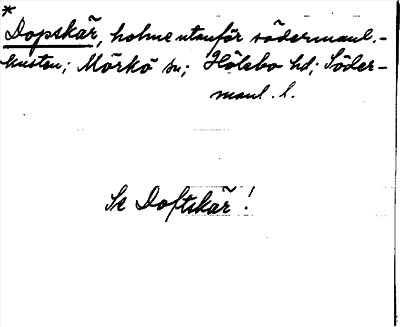 *
Dopskär, holme utanför södermanl.-
kusten; Mörkö sn; Hölebo hd; Söder-
manl. l.
Se Doftskär!